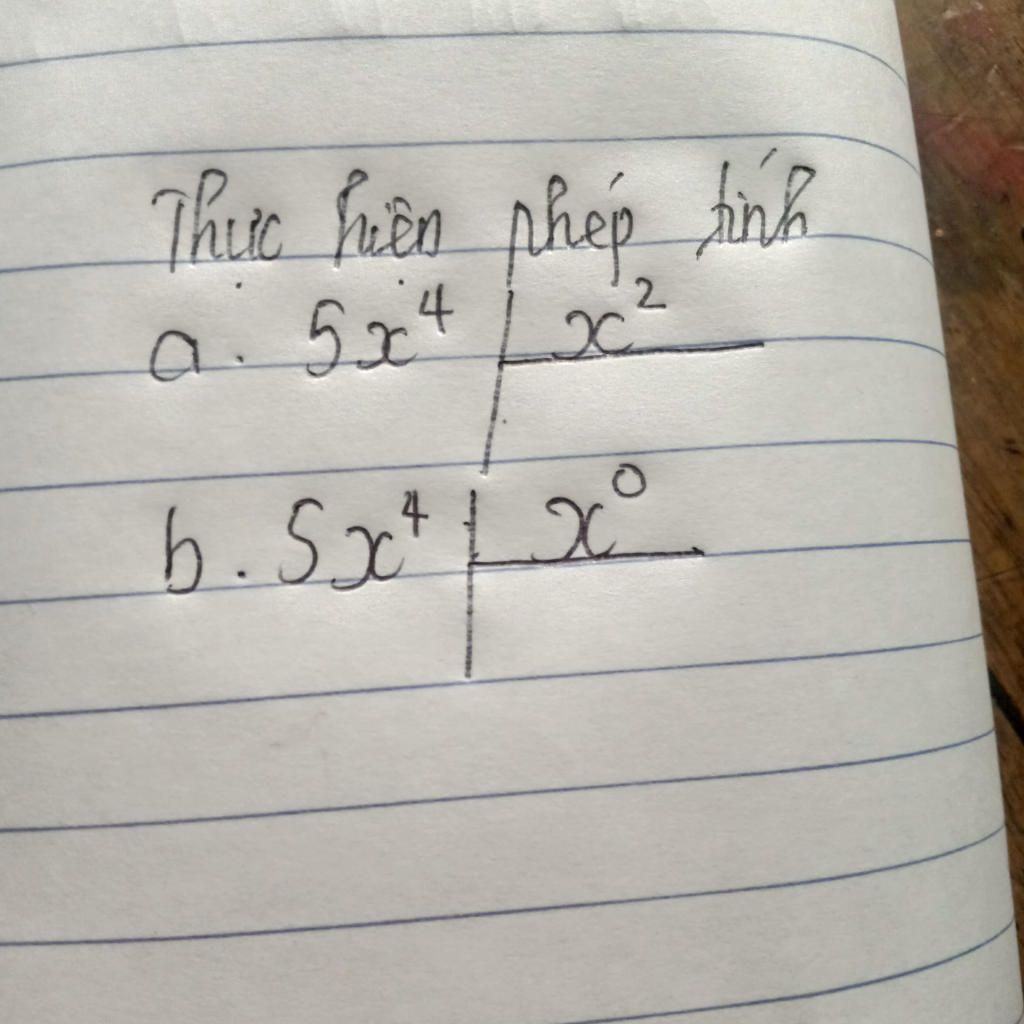 Thực hiện phép tính
a. 5x⁴ | x²
b. 5x⁴ | x⁰